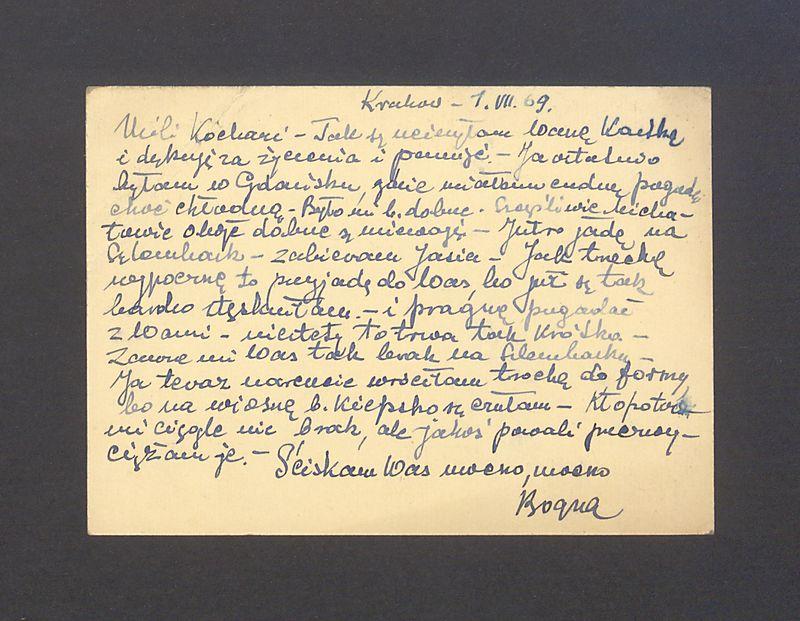 Kraków – 1.VII.69.
Mili Kochani – Tak się ucieszyłam Waszą Kartką
i dziękuję za życzenia i pamięć. – Ja ostatnio
byłam w Gdańsku, gdzie miałam cudną pogodę
choć chłodną – Było mi b. dobrze. Szczęśliwie Micha-
towie oboje dobrze się miewają – Jutro jadę na
Głembark – zabieram Jasia – Jak trochę
wypocznę to przyjadę do Was, bo już się tak
bardzo stęskniłam. – i pragnę pogadać
z Wami – niestety to trwa tak krótko –
Zawsze mi Was tak brak na
Ja teraz nareszcie wróciłam trochę do formy,
bo na wiosnę b. kiepsko się czułam – Kłopotów
mi ciągle nie brak, ale jakoś powoli przezwy-
ciężam je. – Ściskam Was mocno, mocno
Bogna